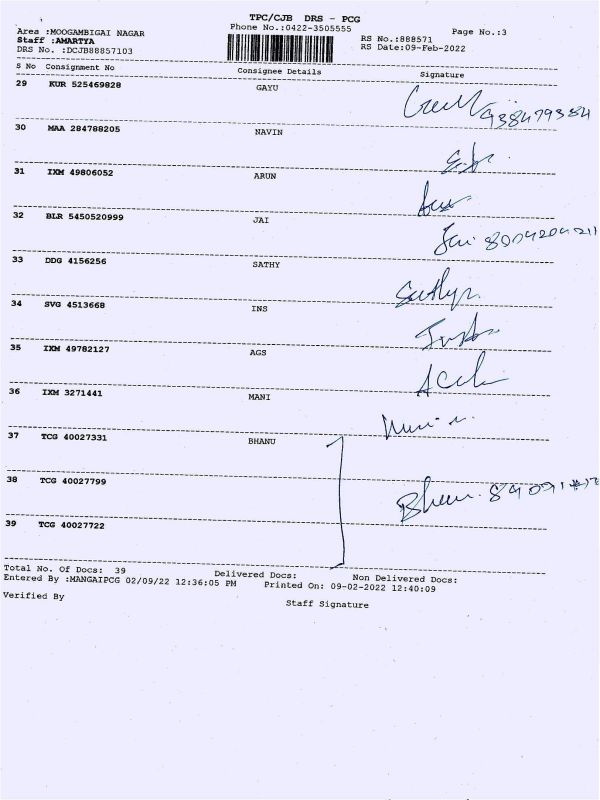 TPC/CJB DRS - PCG
Phone No.:0422-3505555 Page No.:3
Area :MOOGAMBIGAI NAGAR RS No.:888571
Staff :AMARTYA RS Date:09-Feb-2022
DRS No. :DCJB88857103
S No Consignment No Consignee Details Signature
29 KUR 525469828 GAYU
30 MAA 284788205 NAVIN
31 IXM 49806052 ARUN
32 BLR 5450520999 JAI
33 DDG 4156256 SATHY
34 SVG 4513668 INS
35 IXM 49782127 AGS
36 IXM 3271441 MANI
37 TCG 40027331 BHANU
38 TCG 40027799
39 TCG 40027722
Total No. Of Docs: 39 Delivered Docs: Non Delivered Docs:
Entered By :MANGAIPCG 02/09/22 12:36:05 PM Printed On: 09-02-2022 12:40:09
Verified By Staff Signature